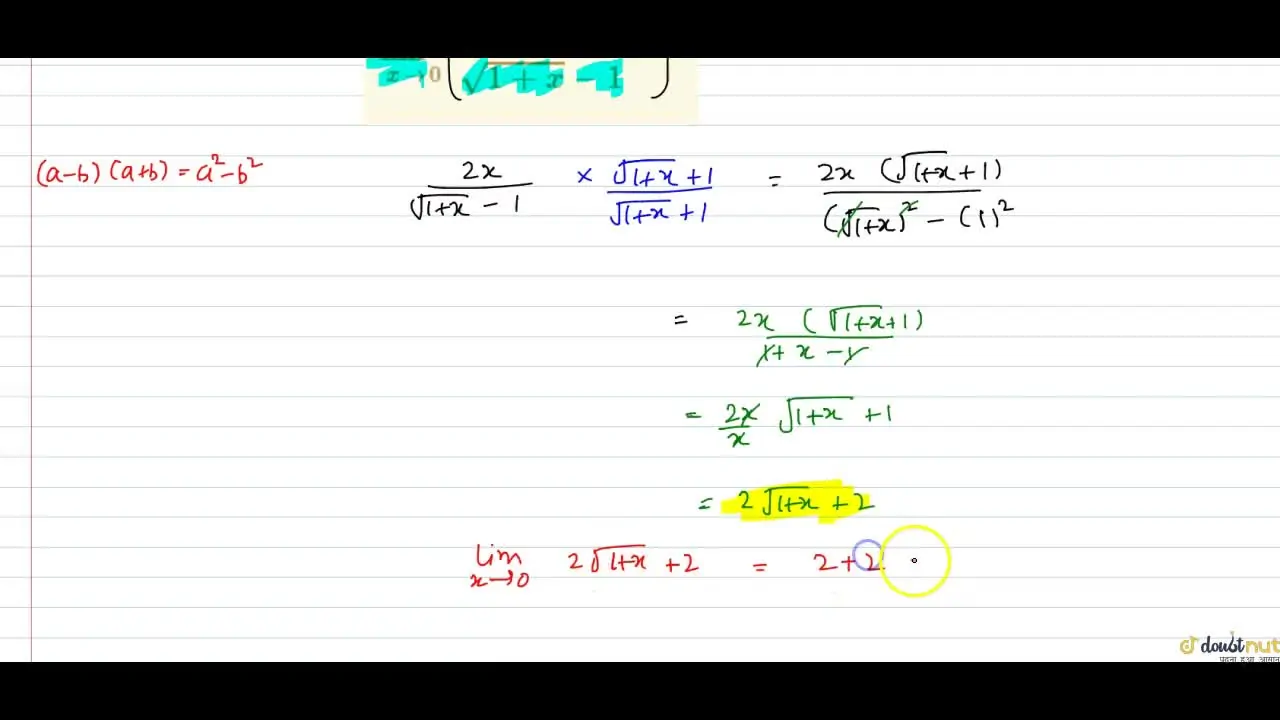 x→0 ( √1+x − 1 )
(a-b) (a+b) = a²-b²
2x / √1+x − 1 × √1+x +1 / √1+x +1 = 2x (√1+x +1) / (√1+x)² − (1)²
= 2x (√1+x +1) / 1+ x −1
= 2x/x √1+x +1
= 2√1+x + 2
lim x→0 2√1+x +2 = 2+2
doubtnut
पढ़ना हुआ आसान